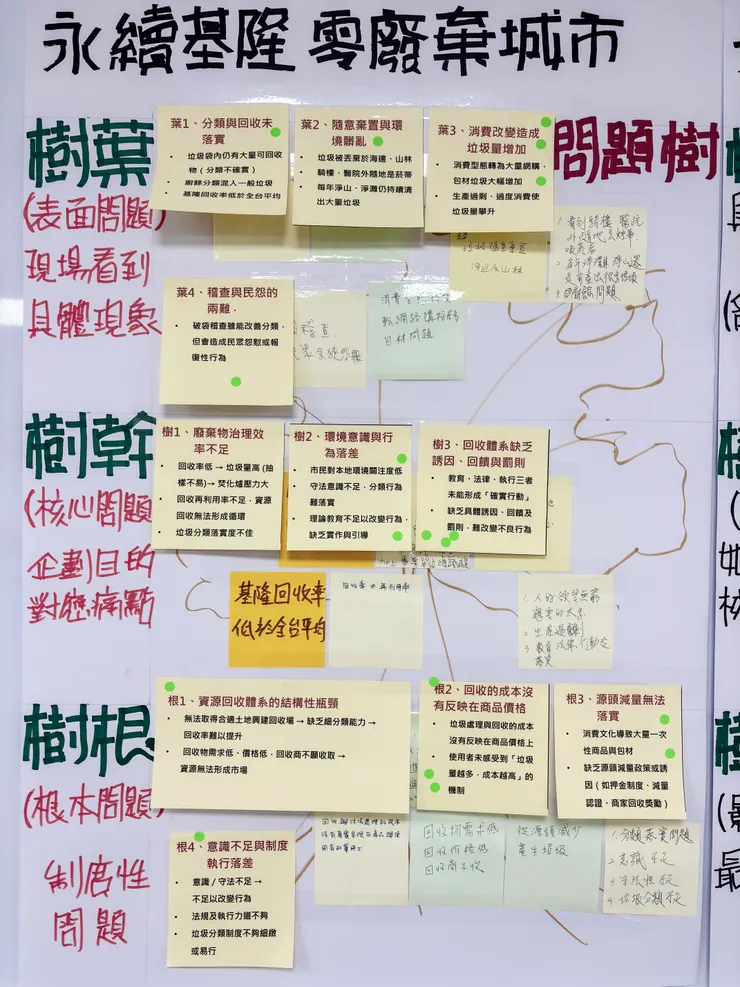 永續基隆 零廢棄城市
問題樹
樹葉
(表面問題)
現場看到
具體現象
葉1、分類與回收未
落實
• 垃圾袋內仍有大量可回收
物（分類不確實）
• 廚餘分類混入一般垃圾
• 基隆回收率低於全台平均
葉2、隨意棄置與環
境髒亂
• 垃圾被丟棄於海邊、山林
騎樓、醫院外隨地是菸蒂
• 每年淨山、淨灘仍持續清
出大量垃圾
葉3、消費改變造成
垃圾量增加
• 消費型態轉為大量網購，
包材垃圾大幅增加
• 生產過剩，過度消費使
垃圾量攀升
垃圾隨意棄置
1. 看到騎樓 醫院
3. 廚餘問題
葉4、稽查與民怨的
兩難，
• 破袋稽查雖能改善分類，
但會造成民眾怨懟或報
復性行為
稽查
包材問題
樹幹
(核心問題
企劃目的
對應痛點
樹1、廢棄物治理效
率不足
• 回收率低 → 垃圾量高（抽
樣不易）→ 焚化爐壓力大
• 回收再利用率不足，資源
回收無法形成循環
• 垃圾分類落實度不佳
樹2、環境意識與行
為落差
• 市民對本地環境關注度低
• 守法意識不足，分類行為
難落實
• 理論教育不足以改變行為，
缺乏實作與引導
樹3、回收體系缺乏
誘因、回饋與罰則
• 教育、法律、執行三者
未能形成「確實行動」
• 缺乏具體誘因、回饋及
罰則，難改變不良行為
基隆回收率
低於全台平均
1. 人的欲望無窮
想要的太多
2. 生產過剩
樹根
(根本問題)
制度性
問題
根1、資源回收體系的結構性瓶頸
• 無法取得合適土地興建回收場 → 缺乏細分類能力 →
回收率難以提升
• 回收物需求低、價格低，回收商不願收取 →
資源無法形成市場
根2、回收的成本沒
有反映在商品價格
• 垃圾處理與回收的成本
沒有反映在商品價格上
• 使用者未感受到「垃圾
量越多，成本越高」的
機制
根3、源頭減量無法
落實
• 消費文化導致大量一次
性商品與包材
• 缺乏源頭減量政策或誘
因（如押金制度、減量
認證、商家回收獎勵）
根4、意識不足與制度
執行落差
• 意識／守法不足 →
不足以改變行為
• 法規及執行力道不夠
• 垃圾分類制度不夠細緻
或易行
回收物需求低
回收價格低
回收商不收
從源頭減少
產生垃圾
1. 分類落實問題
2. 意識不足
3. 守法性不足
4. 垃圾分類不足